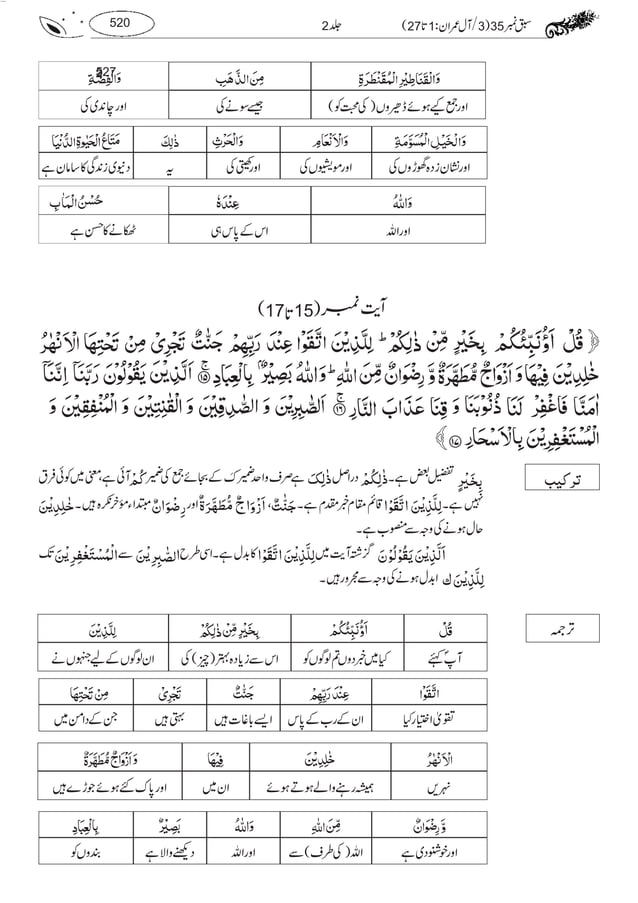 سبق نمبر 35(3/آل عمران:1 تا 27) جلد 2 520
وَالْقَنَاطِیْرِ الْمُقَنْطَرَةِ مِنَ الذَّھَبِ وَالْفِضَّةِ
اور جمع کیے ہوئے ڈھیروں (کی محبت کو) جیسے سونے کی اور چاندی کی
وَالْخَیْلِ الْمُسَوَّمَةِ وَالْاَنْعَامِ وَالْحَرْثِ ذٰلِکَ مَتَاعُ الْحَیٰوةِ الدُّنْیَا
اور نشان زدہ گھوڑوں کی اور مویشیوں کی اور کھیتی کی یہ دنیوی زندگی کا سامان ہے
وَاللّٰہُ عِنْدَہٗ حُسْنُ الْمَاٰبِ
اور اللہ اس کے پاس ہی ٹھکانے کا حسن ہے
آیت نمبر (15 تا 17)
﴿ قُلْ اَؤُنَبِّئُکُمْ بِخَیْرٍ مِّنْ ذٰلِکُمْ ؕ لِلَّذِیْنَ اتَّقَوْا عِنْدَ رَبِّھِمْ جَنّٰتٌ تَجْرِیْ مِنْ تَحْتِھَا الْاَنْھٰرُ
خٰلِدِیْنَ فِیْھَا وَ اَزْوَاجٌ مُّطَھَّرَةٌ وَّ رِضْوَانٌ مِّنَ اللّٰہِ ؕ وَاللّٰہُ بَصِیْرٌۢ بِالْعِبَادِ ۚ﴿۱۵﴾ اَلَّذِیْنَ یَقُوْلُوْنَ رَبَّنَاۤ اِنَّنَاۤ
اٰمَنَّا فَاغْفِرْ لَنَا ذُنُوْبَنَا وَ قِنَا عَذَابَ النَّارِ ۚ﴿۱۶﴾ اَلصّٰبِرِیْنَ وَ الصّٰدِقِیْنَ وَ الْقٰنِتِیْنَ وَ الْمُنْفِقِیْنَ وَ
الْمُسْتَغْفِرِیْنَ بِالْاَسْحَارِ ﴿۱۷﴾ ﴾
ترکیب بِخَیْرٍ تفضیل بعض ہے۔ ذٰلِکُمْ دراصل ذٰلِکَ ہے صرف واحد ضمیر ک کے بجائے جمع کی ضمیر کُمْ آئی ہے، معنی میں کوئی فرق
نہیں ہے۔ لِلَّذِیْنَ اتَّقَوْا قائم مقام خبر مقدم ہے۔ جَنّٰتٌ، اَزْوَاجٌ مُّطَھَّرَةٌ اور رِضْوَانٌ مبتداء مؤخر نکرہ ہیں۔ خٰلِدِیْنَ
حال ہونے کی وجہ سے منصوب ہے۔
اَلَّذِیْنَ یَقُوْلُوْنَ گزشتہ آیت میں لِلَّذِیْنَ اتَّقَوْا کا بدل ہے۔ اسی طرح الصّٰبِرِیْنَ سے الْمُسْتَغْفِرِیْنَ تک
لِلَّذِیْنَ ک ابدل ہونے کی وجہ سے مجرور ہیں۔
ترجمہ قُلْ اَؤُنَبِّئُکُمْ بِخَیْرٍ مِّنْ ذٰلِکُمْ لِلَّذِیْنَ
آپ کہئے کیا میں خبر دوں تم لوگوں کو اس سے زیادہ بہتر (چیز) کی ان لوگوں کے لیے جنہوں نے
اتَّقَوْا عِنْدَ رَبِّھِمْ جَنّٰتٌ تَجْرِیْ مِنْ تَحْتِھَا
تقویٰ اختیار کیا ان کے رب کے پاس ایسے باغات ہیں بہتی ہیں جن کے دامن میں
الْاَنْھٰرُ خٰلِدِیْنَ فِیْھَا وَ اَزْوَاجٌ مُّطَھَّرَةٌ
نہریں ہمیشہ رہنے والے ہوتے ہوئے ان میں اور پاک کئے ہوئے جوڑے ہیں
وَّ رِضْوَانٌ مِّنَ اللّٰہِ وَاللّٰہُ بَصِیْرٌۢ بِالْعِبَادِ
اور خوشنودی ہے اللہ (کی طرف) سے اور اللہ دیکھنے والا ہے بندوں کو